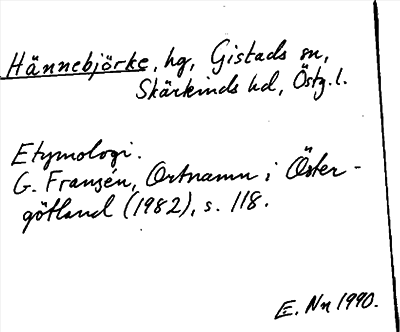 Hännebjörke, hg, Gistads sn,
Skärkinds hd, Östg. l.
Etymologi.
G. Franzén, Ortnamn i Öster-
götland (1982), s. 118.
E. Nn 1990.